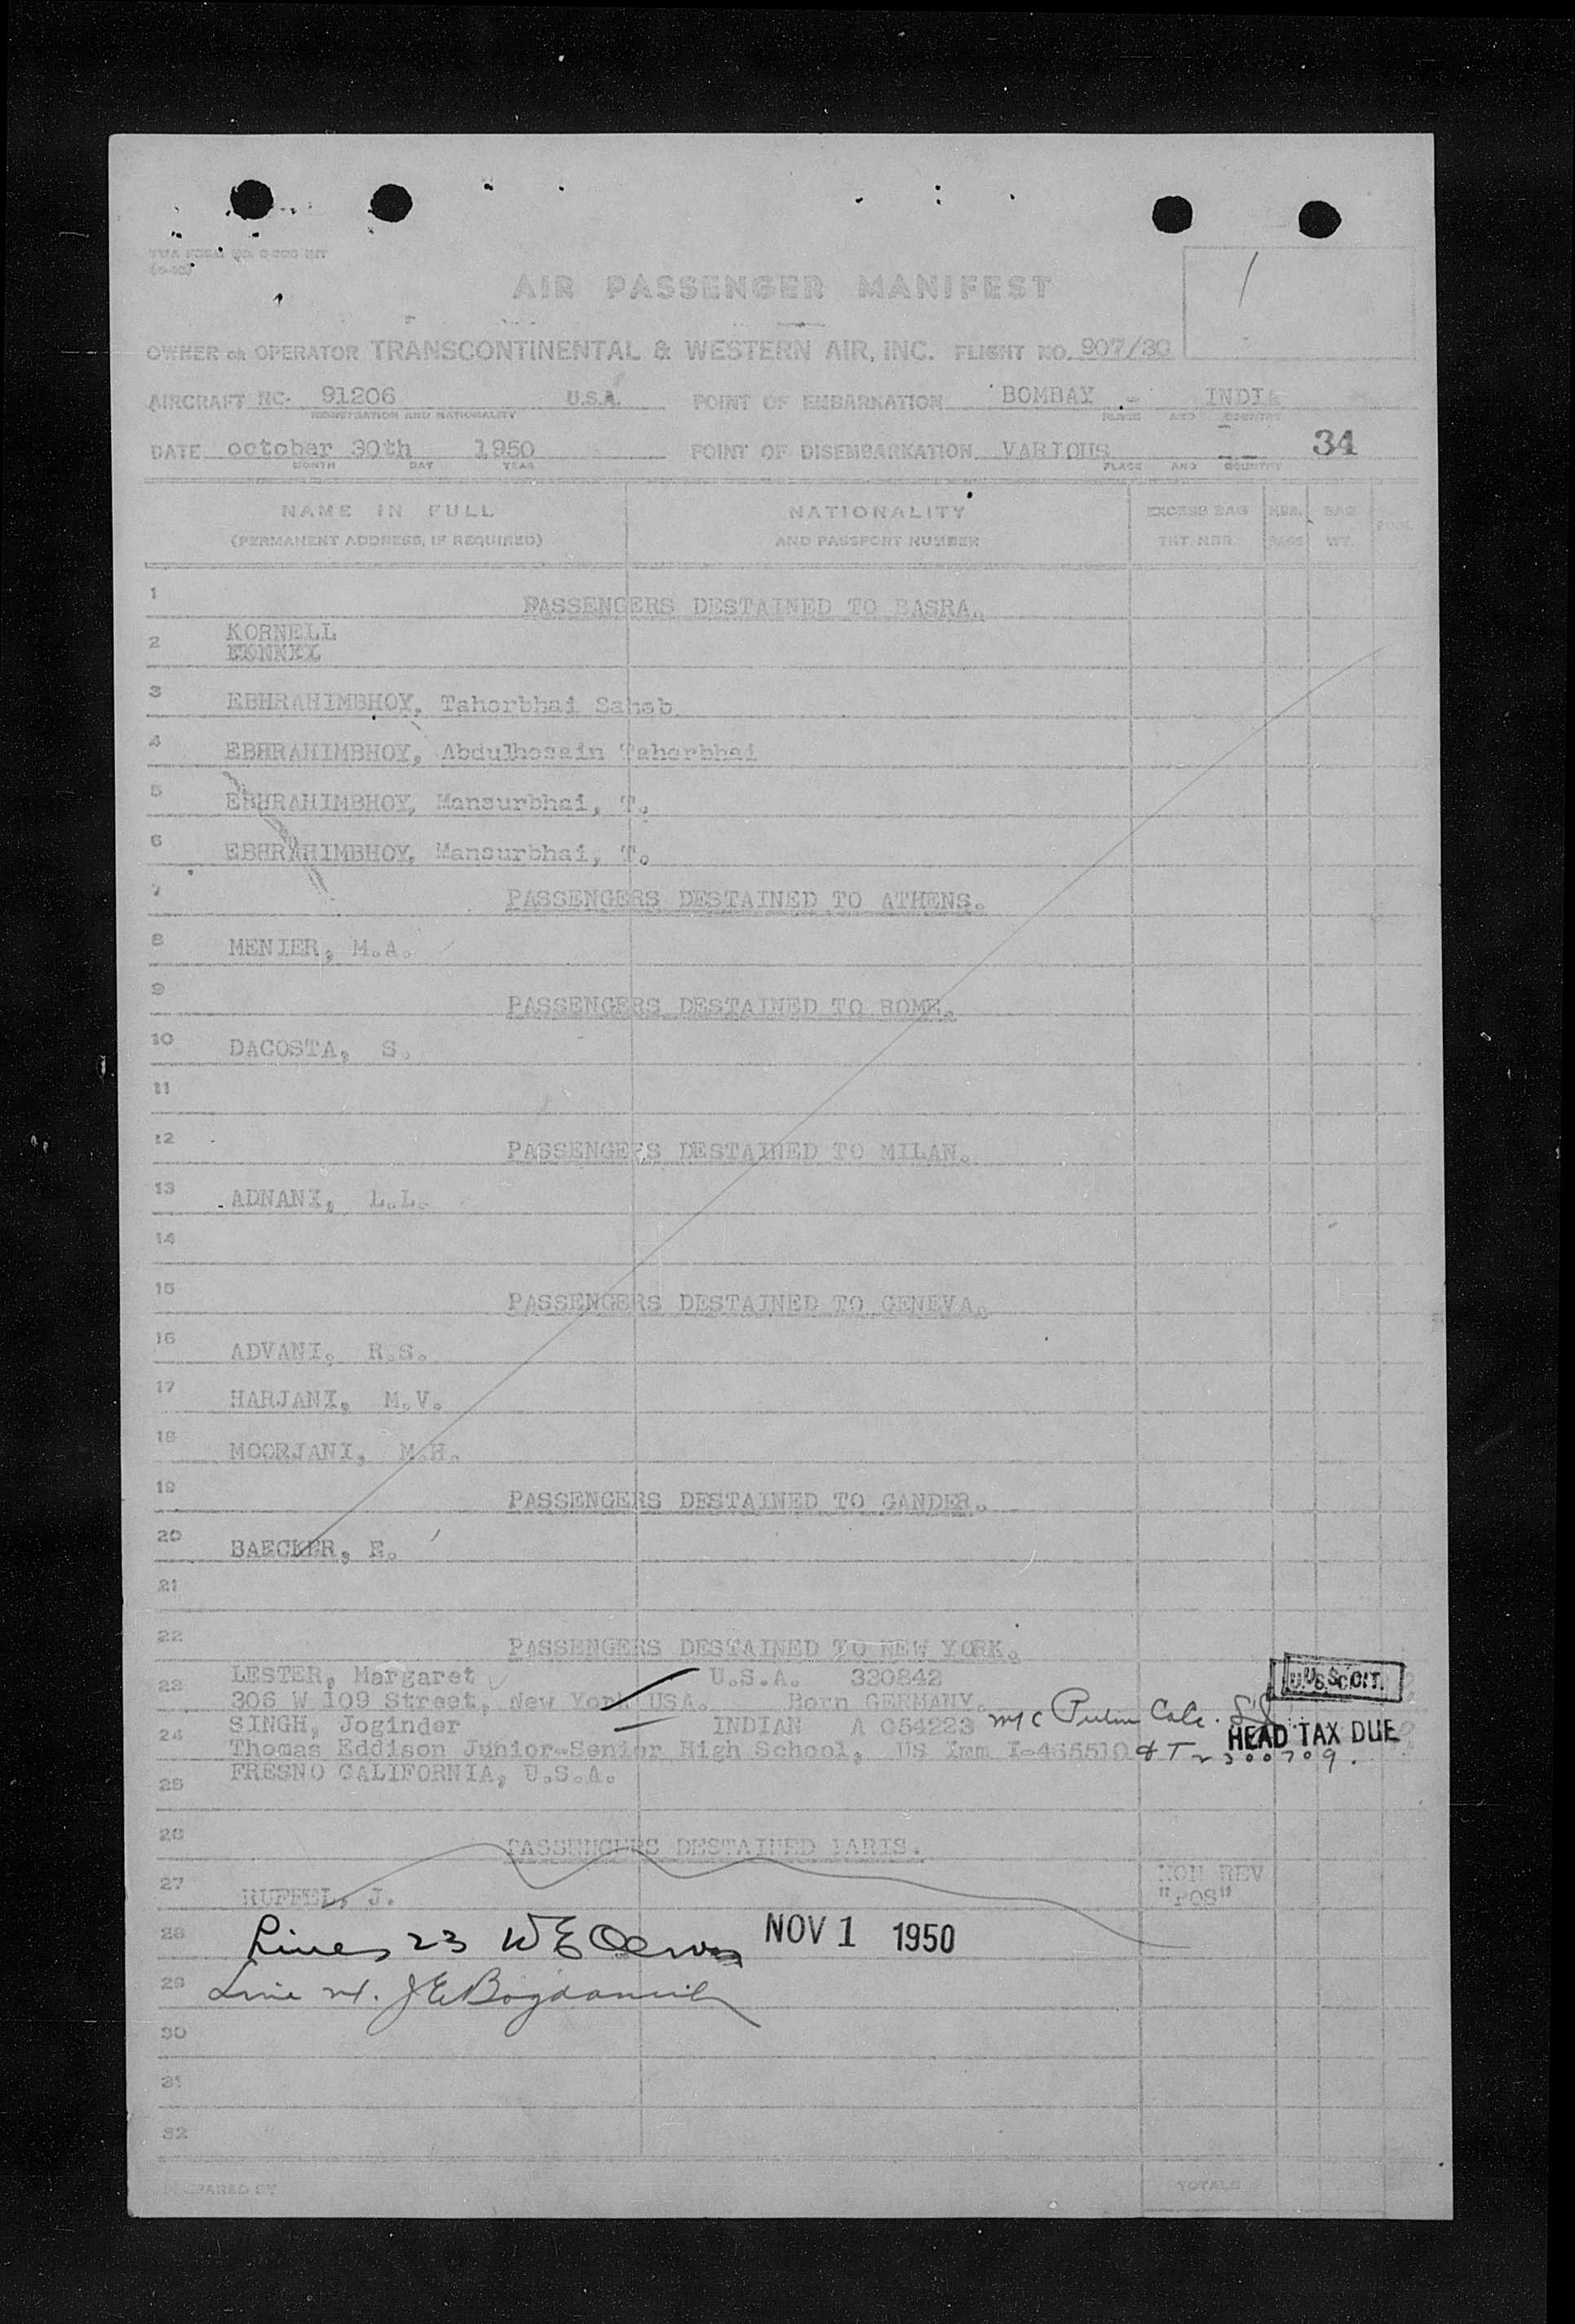 TWA FORM NO. O-200 INT
AIR PASSENGER MANIFEST
1
OWNER OR OPERATOR TRANSCONTINENTAL & WESTERN AIR, INC. FLIGHT NO. 907/30
AIRCRAFT NC- 91206 U.S.A. POINT OF EMBARKATION BOMBAY - INDIA
REGISTRATION AND NATIONALITY PLACE AND COUNTRY
DATE october 30th 1950 POINT OF DISEMBARKATION VARIOUS -- 34
MONTH DAY YEAR PLACE AND COUNTRY
NAME IN FULL NATIONALITY EXCESS BAG NBR. BAG POOL
(PERMANENT ADDRESS, IF REQUIRED) AND PASSPORT NUMBER TKT. NBR. BAGS WT.
1 PASSENGERS DESTAINED TO BASRA.
KORNELL
2
3 EBHRAHIMBHOY, Taherbhai Saheb
4 EBHRAHIMBHOY, Abdulhosain Taherbhai
5 EBHRAHIMBHOY, Mansurbhai, T.
6 EBHRAHIMBHOY, Mansurbhai, T.
7 PASSENGERS DESTAINED TO ATHENS.
8 MENIER, M.A.
9 PASSENGERS DESTAINED TO ROME.
10 DACOSTA, S.
11
12 PASSENGERS DESTAINED TO MILAN.
13 ADNANI, L.L.
14
15 PASSENGERS DESTAINED TO GENEVA.
16 ADVANI, R.S.
17 HARJANI, M.V.
18 MOORJANI, M.H.
19 PASSENGERS DESTAINED TO GANDER.
20 BAECKER, E.
21
22 PASSENGERS DESTAINED TO NEW YORK.
LESTER, Margaret U.S.A. 320842
23 306 W 109 Street, New York USA. Born GERMANY. U.S. CIT.
SINGH, Joginder INDIAN A 054223
24 HEAD TAX DUE
Thomas Eddison Junior-Senior High School, US Imm I-465510 & T 2300709.
FRESNO CALIFORNIA, U.S.A.
25
26 PASSENGERS DESTAINED PARIS.
27 RUFFEL, J. NON REV
"POS"
28 Lines 23 NOV 1 1950
29 Line 24. J E Bogdanovich
30
31
32
PREPARED BY TOTALS